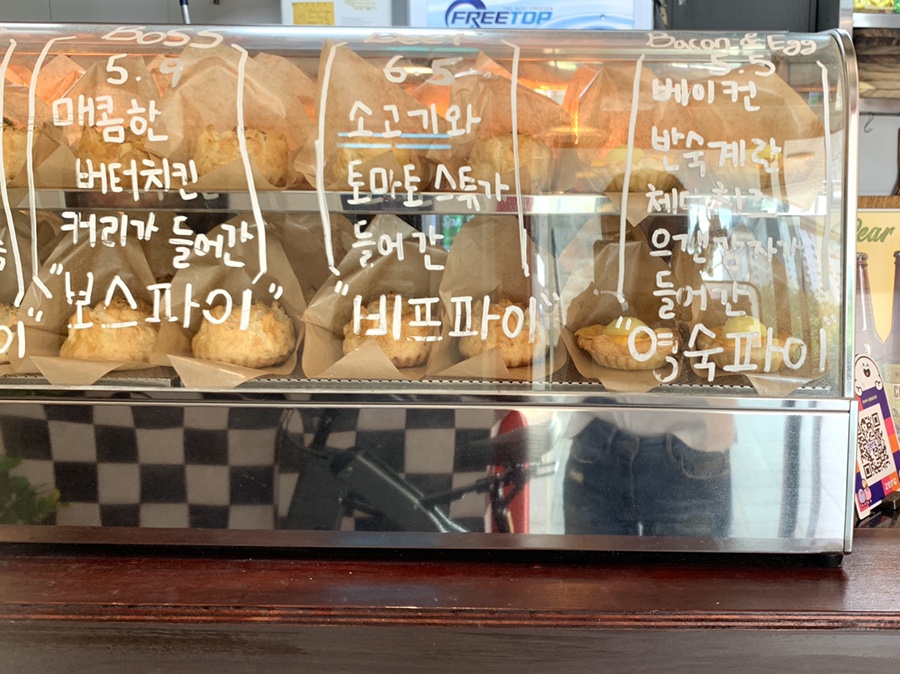 FREETOP
BOSS
5.9
매콤한
버터치킨
커리가 들어간
"보스파이"
Beef
6.5
소고기와
토마토 스튜가
들어간
"비프파이"
Bacon & Egg
5.5
베이컨
반숙계란
체다치즈
으깬감자가
들어간
"영숙파이"
이"
ear
zero